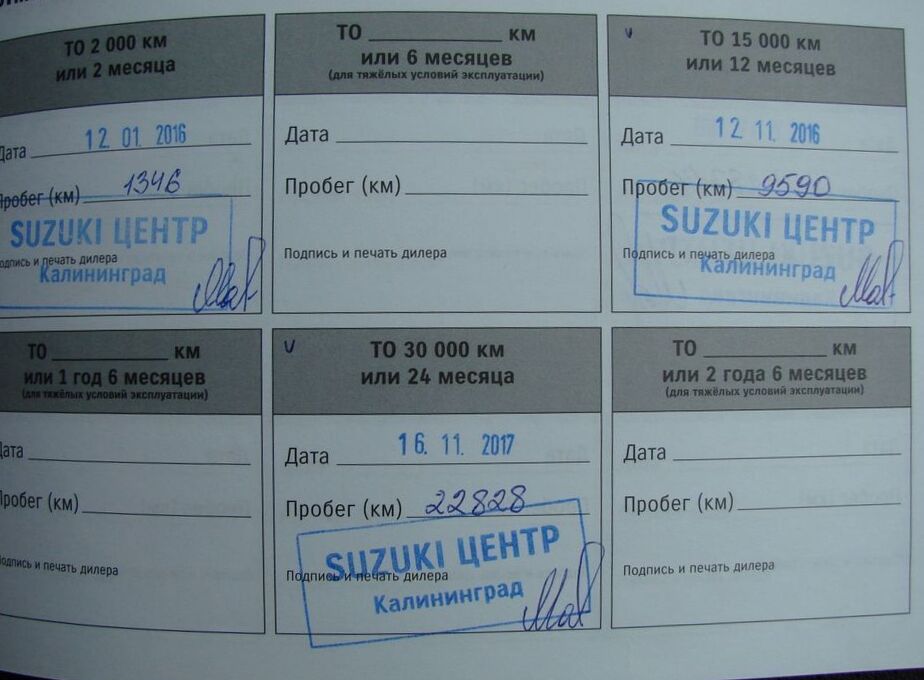 ТО 2 000 км
или 2 месяца
Дата 12 01 2016
Пробег (км) 1346
SUZUKI ЦЕНТР
Подпись и печать дилера
Калининград
ТО ____________ км
или 6 месяцев
(для тяжёлых условий эксплуатации)
Дата
Пробег (км)
Подпись и печать дилера
v
ТО 15 000 км
или 12 месяцев
Дата 12 11. 2016
Пробег (км) 9590
SUZUKI ЦЕНТР
Подпись и печать дилера
Калининград
ТО ____________ км
или 1 год 6 месяцев
(для тяжёлых условий эксплуатации)
Дата
Пробег (км)
Подпись и печать дилера
v
ТО 30 000 км
или 24 месяца
Дата 16. 11. 2017
Пробег (км) 22828
SUZUKI ЦЕНТР
Подпись и печать дилера
Калининград
ТО ____________ км
или 2 года 6 месяцев
(для тяжёлых условий эксплуатации)
Дата
Пробег (км)
Подпись и печать дилера